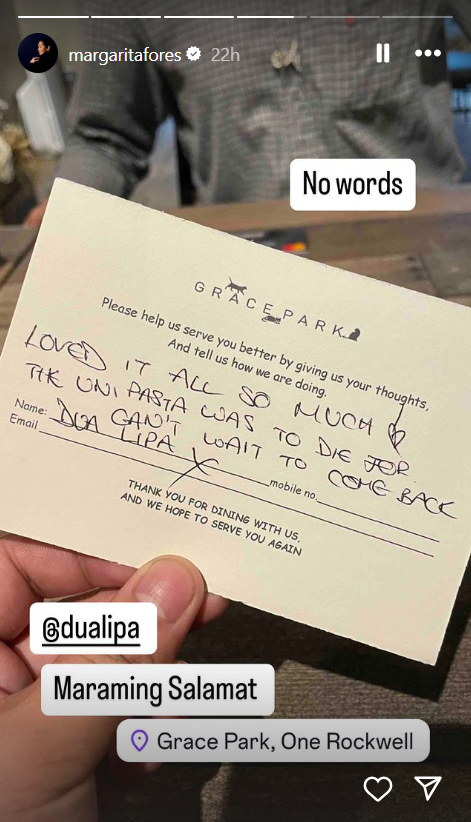 margaritafores 22h
No words
GRACE PARK
Please help us serve you better by giving us your thoughts,
And tell us how we are doing.
LOVED IT ALL SO MUCH
THE UNI PASTA WAS TO DIE FOR.
CAN'T WAIT TO COME BACK
Name: DUA LIPA X mobile no.
Email
THANK YOU FOR DINING WITH US,
AND WE HOPE TO SERVE YOU AGAIN
@dualipa
Maraming Salamat
Grace Park, One Rockwell